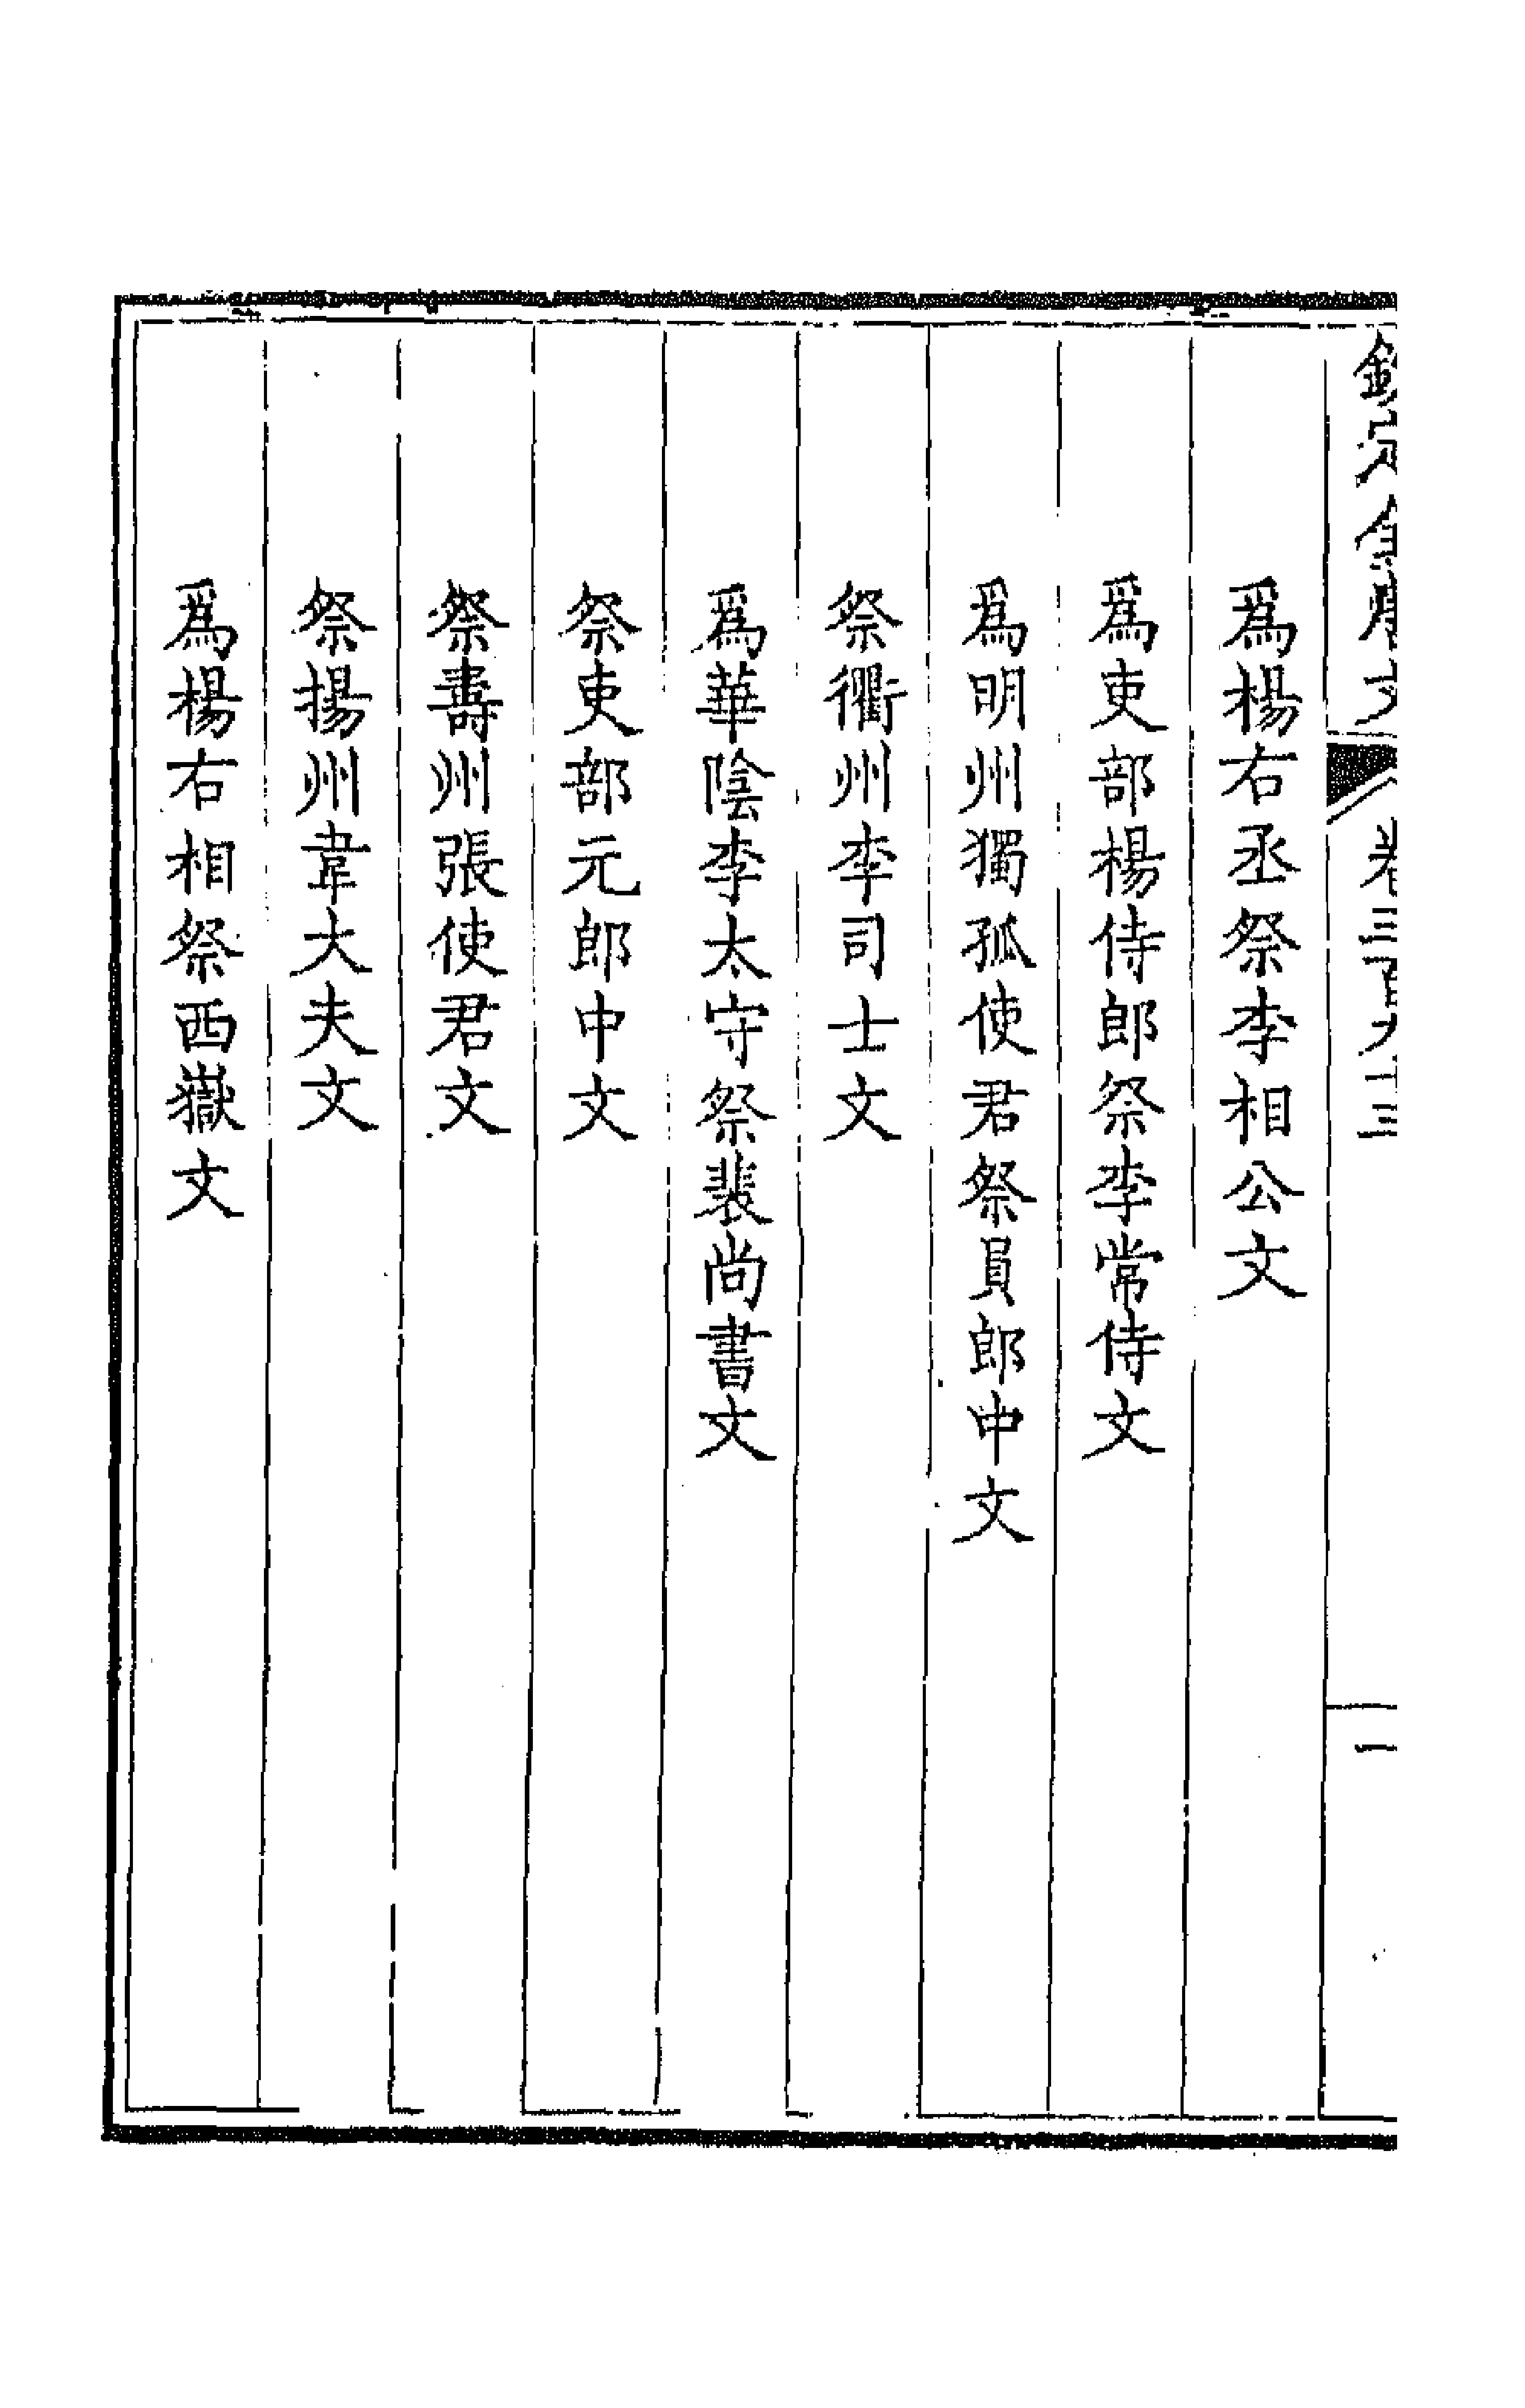 欽定全唐文 卷三百九十三 一
爲楊右丞祭李相公文
爲吏部楊侍郎祭李常侍文
爲明州獨孤使君祭員郎中文
祭衢州李司士文
爲華陰李太守祭裴尚書文
祭吏部元郎中文
祭壽州張使君文
祭揚州韋大夫文
爲楊右相祭西嶽文